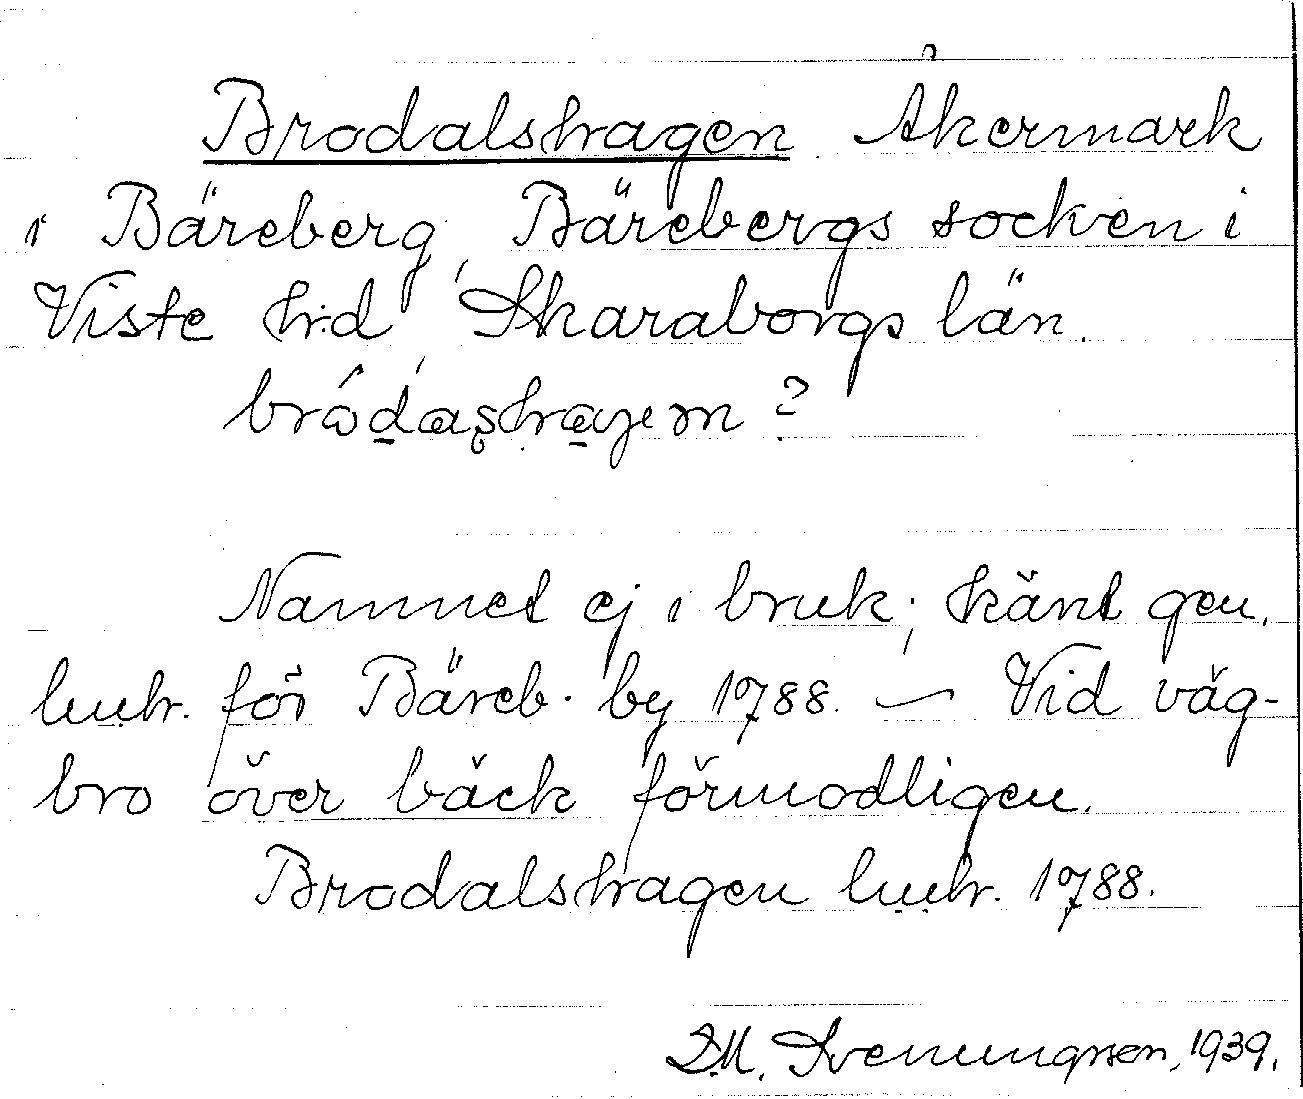 Brodalshagen Åkermark
i Bäreberg, Bärebergs socken i
Viste hd, Skaraborgs län.
brǿdashagem ?
Namnet ej i bruk; känt gen.
lmhr. för Bäreb. by 1788. — Vid väg-
bro över bäck förmodligen.
Brodalshagen lmhr. 1788.
D.M. Svenungsson, 1939.